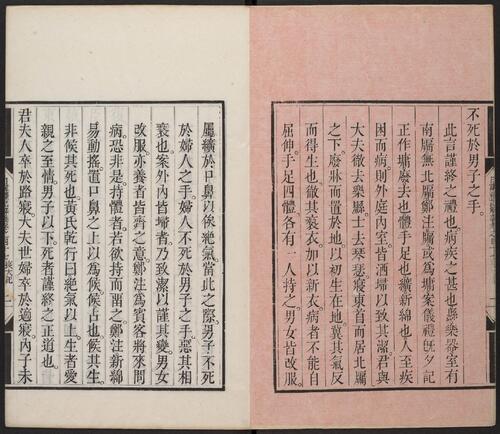 不死於男子之手。
此言謹終之禮也。病疾之甚也縣樂器室有
南牖無北牖鄭注牖或爲墉案儀禮旣夕記
正作墉廢去也體手足也纊新綿也人至疾
困而病則外庭內室皆洒埽以致其潔君與
大夫徹去樂縣士去琴瑟。寢東首而居北牖
之下。廢牀而置於地以初生在地冀其氣反
而得生也徹其褻衣。加以新衣病者不能自
屈伸手足四體。各有一人持之。男女皆改服。
屬纊於口鼻以俟絶氣。當此之際。男子不死
於婦人之手。婦人不死於男子之手。惡其相
褻也。案外內皆埽者。乃致潔以謹其變。男女
改服亦養者皆齊之意。鄭注爲賓客將來問
病。恐非是持體者。若欲持而畱之鄭注新綿
易動搖。置口鼻之上以爲候。候占也。候其生。
非候其死也。黃氏乾行曰絶氣以上。生者愛
親之至情。男子以下。死者謹終之正道也。
君夫人卒於路寢。大夫世婦卒於適寢。內子未